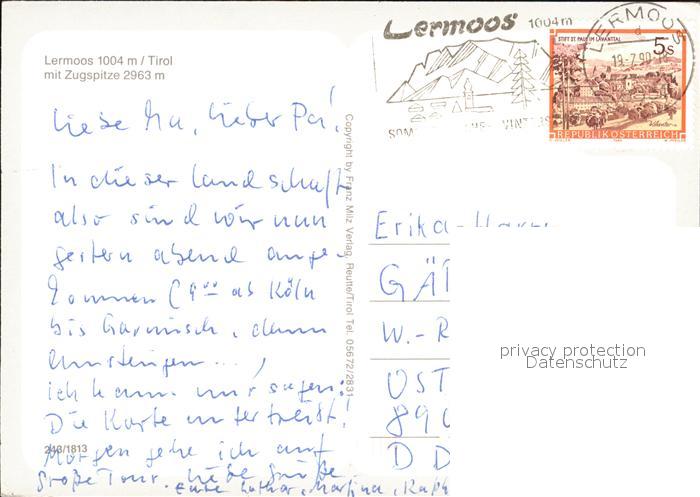 Lermoos 1004 m / Tirol
mit Zugspitze 2963 m
Lermoos 1004m
LERMOOS
19.-7.90
STIFT ST. PAUL IM LAVANTTAL
5s
REPUBLIK ÖSTERREICH
Liebe Ma, lieber Pa!
In dieser Landschaft
also sind wir nun
gestern abend ange-
kommen (9⁰⁰ ab Köln
bis Garmisch, dann
umsteigen...,
ich kann nur sagen:
Die Karte untertreibt!
Morgen gehe ich auf
große Tour. Liebe Grüße
Eure Lothar, Martina,
Copyright by Franz Milz Verlag, Reutte/Tirol Tel. 05672/2831
243/1813
Erika-
GÄ
W.-R
OST
890
D D
privacy protection
Datenschutz